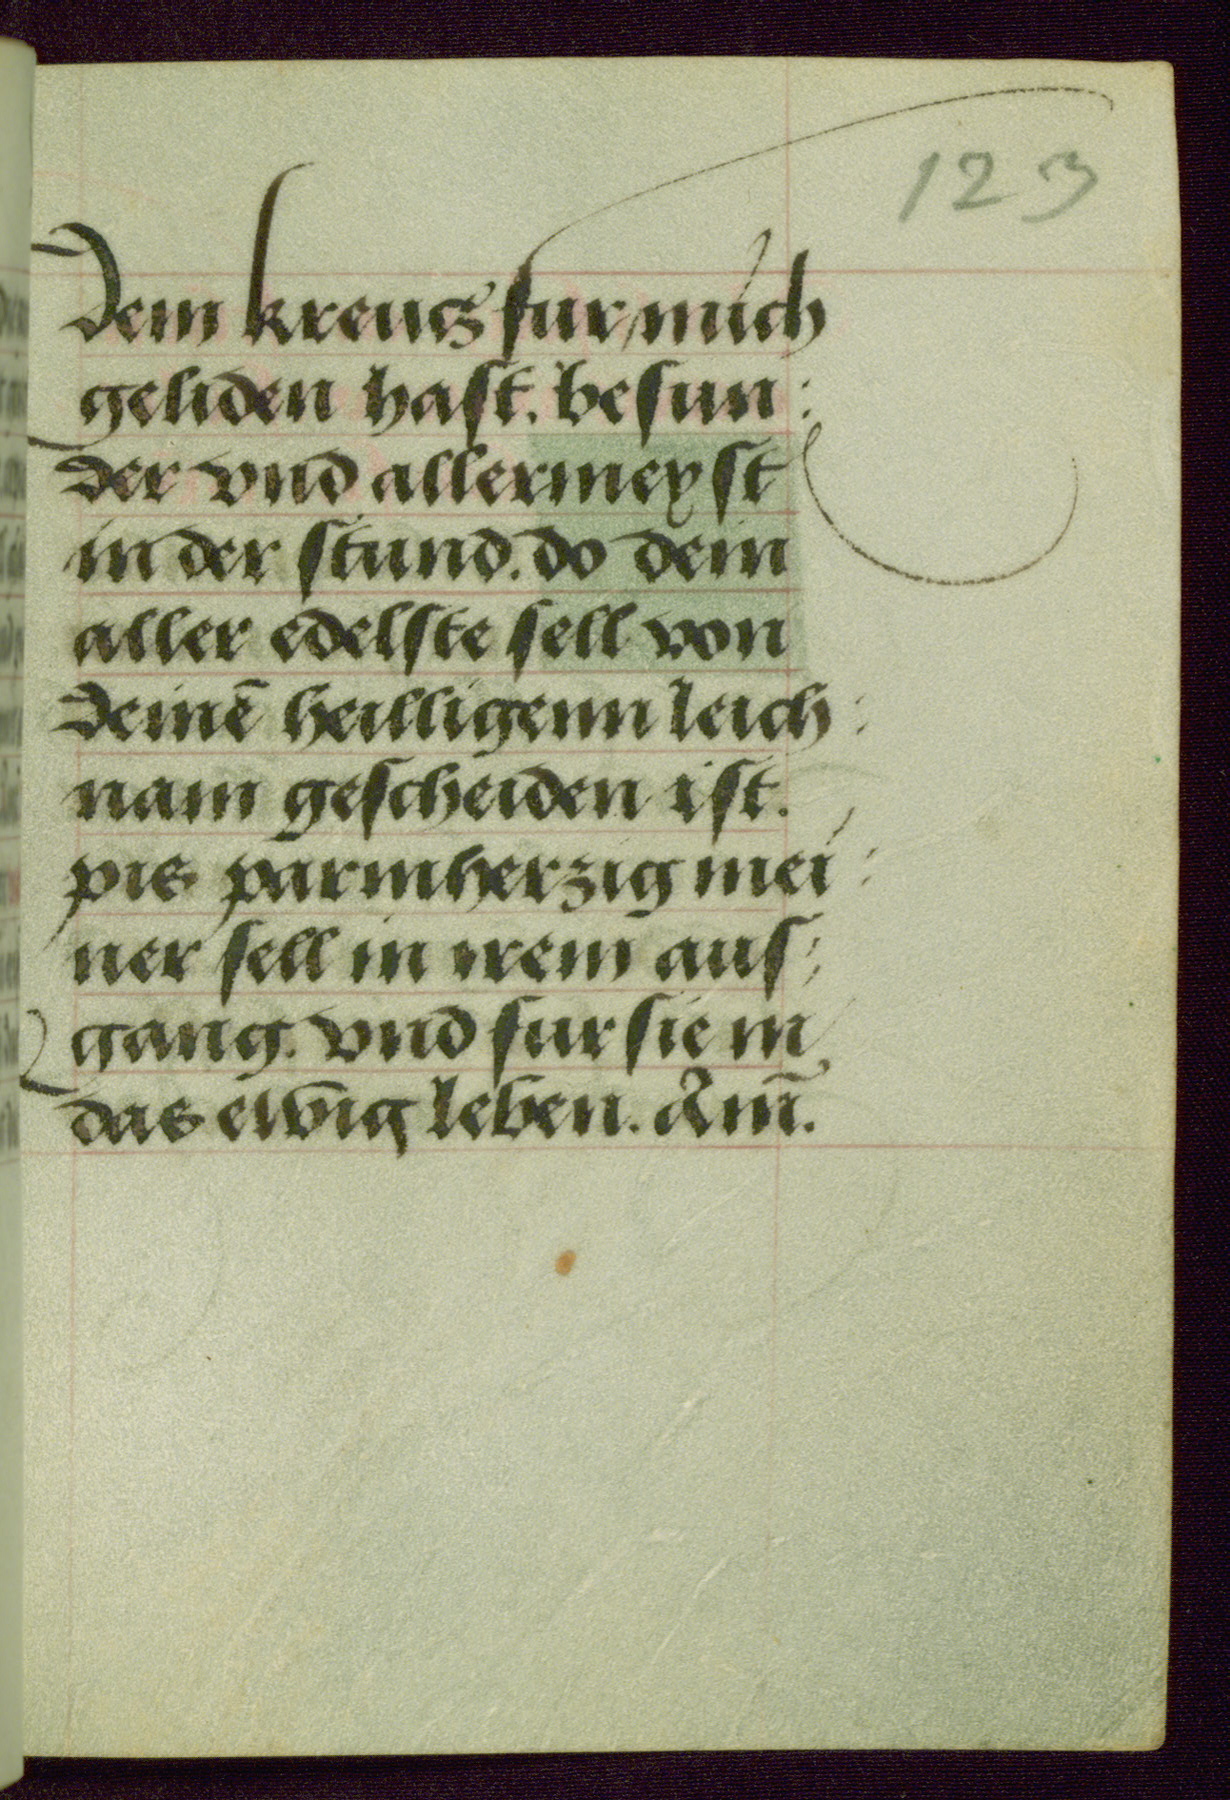 123
Dem kreucz fur mich
geliden hast. besun:
der vnd allermeyst
in der stund. do dein
aller edelste sell von
deinē heilligenn leich:
nam gescheiden ist.
pis parmherzig mei:
ner sell in irem aus:
gang. vnd fur sie in
das ewig leben. Am̄.